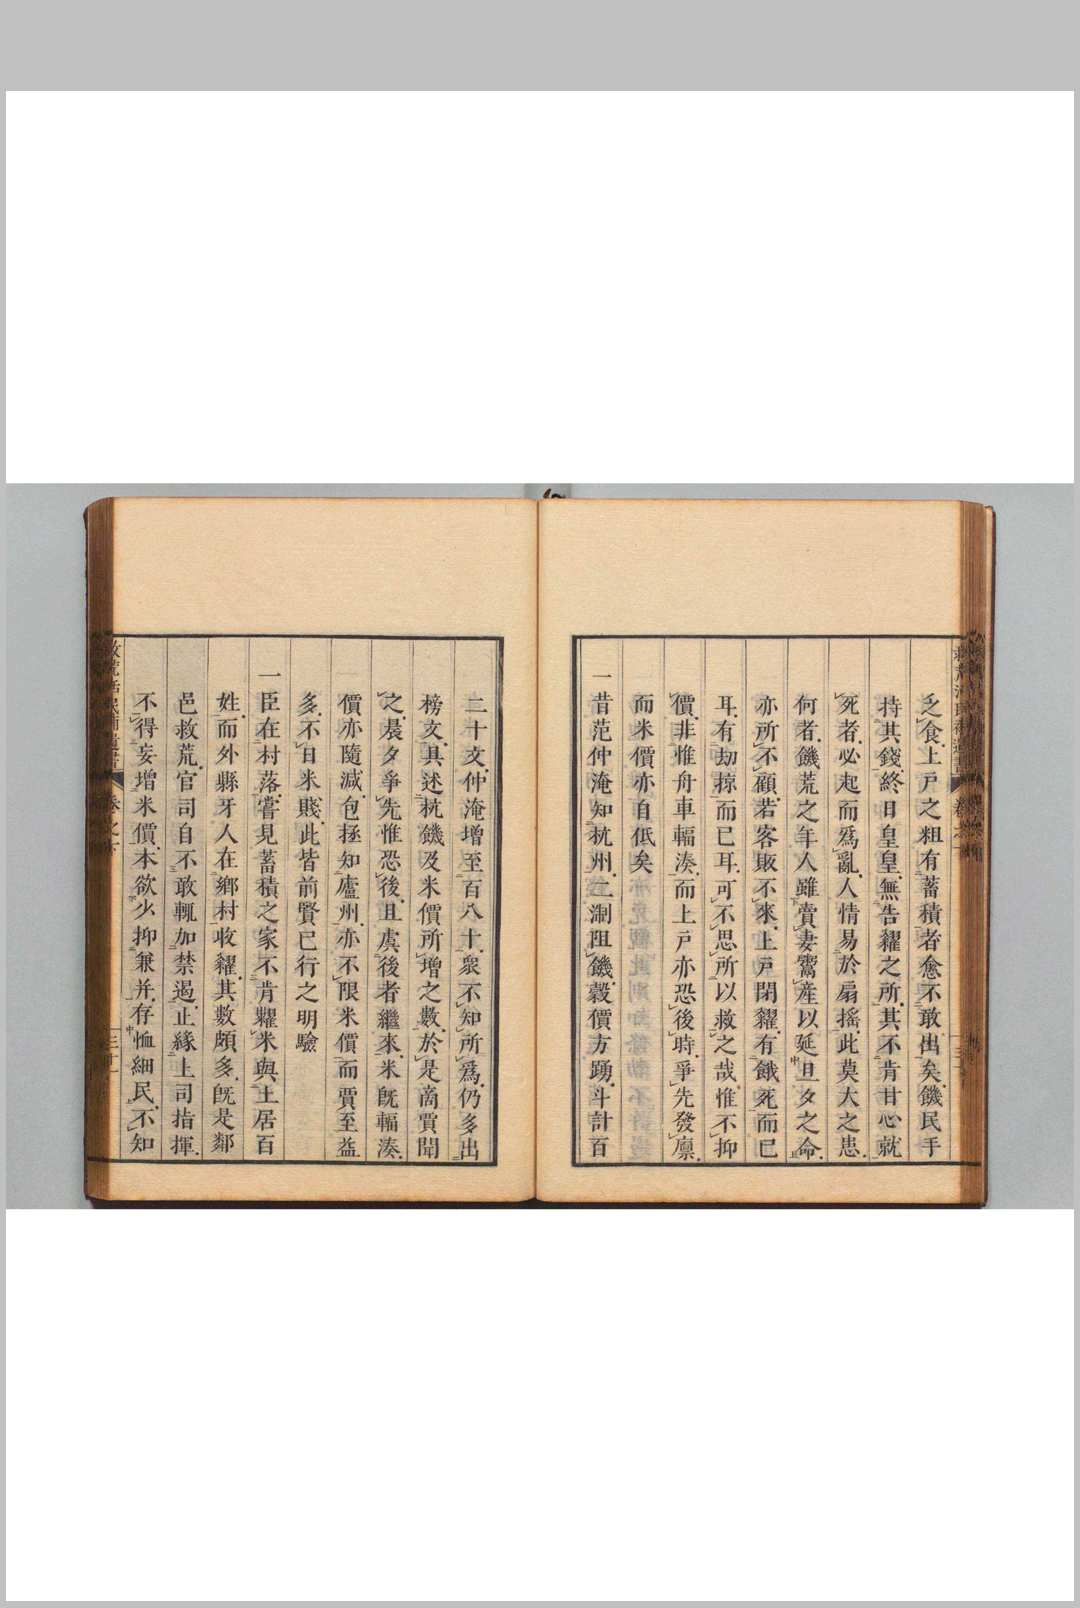 乏食上戶之粗有蓄積者愈不敢出矣饑民手
持其錢終日皇皇無告糴之所其不肯甘心就
死者必起而爲亂人情易於扇搖此莫大之患
何者饑荒之年人雖賣妻鬻產以延旦夕之命
亦所不顧若客販不來上戶閉糴有餓死而已
耳有劫掠而已耳可不思所以救之哉惟不抑
價非惟舟車輻湊而上戶亦恐後時爭先發廪
而米價亦自低矣
一昔范仲淹知杭州二浙阻饑穀價方踴斗計百
二十文仲淹增至百八十衆不知所爲仍多出
榜文具述杭饑及米價所增之數於是商賈聞
之晨夕爭先惟恐後且虞後者繼來米旣輻湊
價亦隨減包拯知廬州亦不限米價而賈至益
多不日米賤此皆前賢已行之明驗
一臣在村落嘗見蓄積之家不肯糶米與土居百
姓而外縣牙人在鄉村收糴其數頗多旣是鄰
邑救荒官司自不敢輒加禁遏止緣上司指揮
不得妄增米價本欲少抑兼并存恤細民不知
救荒活民補遺書 卷之下